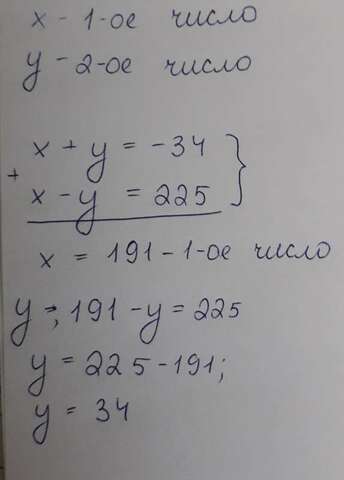 x - 1-ое число
y - 2-ое число
x + y = -34
+
x - y = 225
x = 191 - 1-ое число
y =; 191 - y = 225
y = 225 - 191;
y = 34